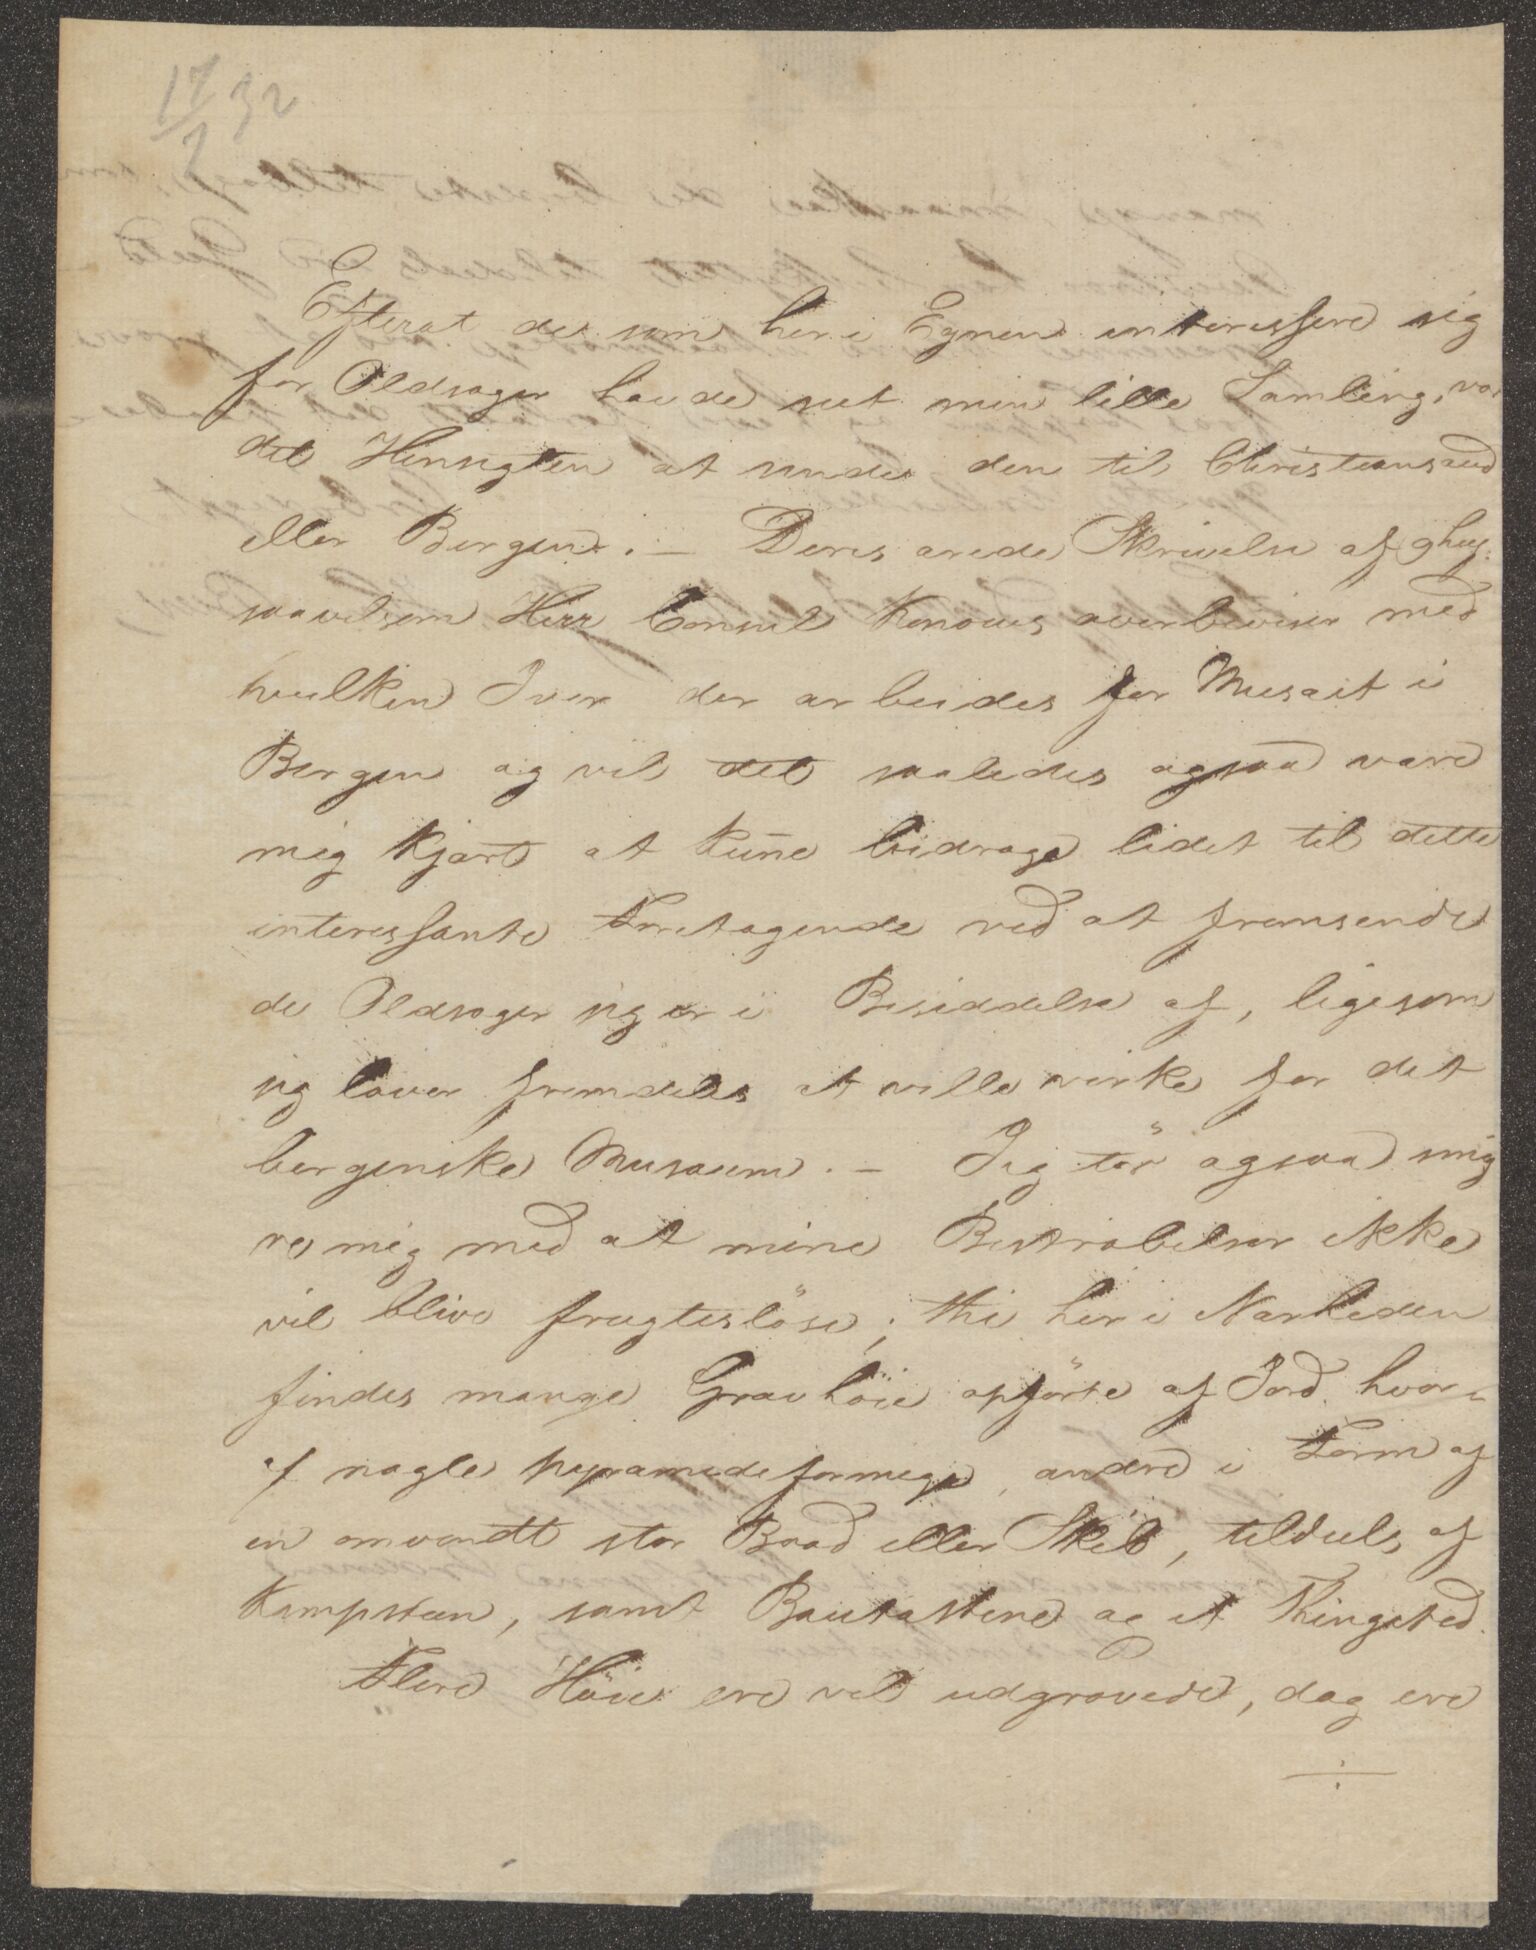 17/7 32
Efterat de som her i Egnen interesserer sig
for Oldsager havde seet min lille Samling, var
det Hensigten at sende den til Christiansand
eller Bergen. — Deres ærede Skrivelse af
saavelsom Herr Consul Konows overbeviser med
hvilken Iver der arbeides for Museet i
Bergen og vil det saaledes ogsaa være
mig kjært at kunne bidrage lidet til dette
interessante Foretagende ved at fremsende
de Oldsager jeg er i Besiddelse af, ligesom
jeg lover fremdeles at ville virke for det
bergenske Musæum. — Jeg tör ogsaa smig
re mig med at mine Bestræbelser ikke
vil blive frugteslöse; thi her i Nærheden
findes mange Gravhöie opförte af Jord hvor-
af nogle pyramideformige, andre i Form af
en omvendt stor Baad eller Skib, tildeels af
Kampsteen, samt Bautastene og et Thingsted.
Flere Höie ere vel udgravede, dog ere
÷